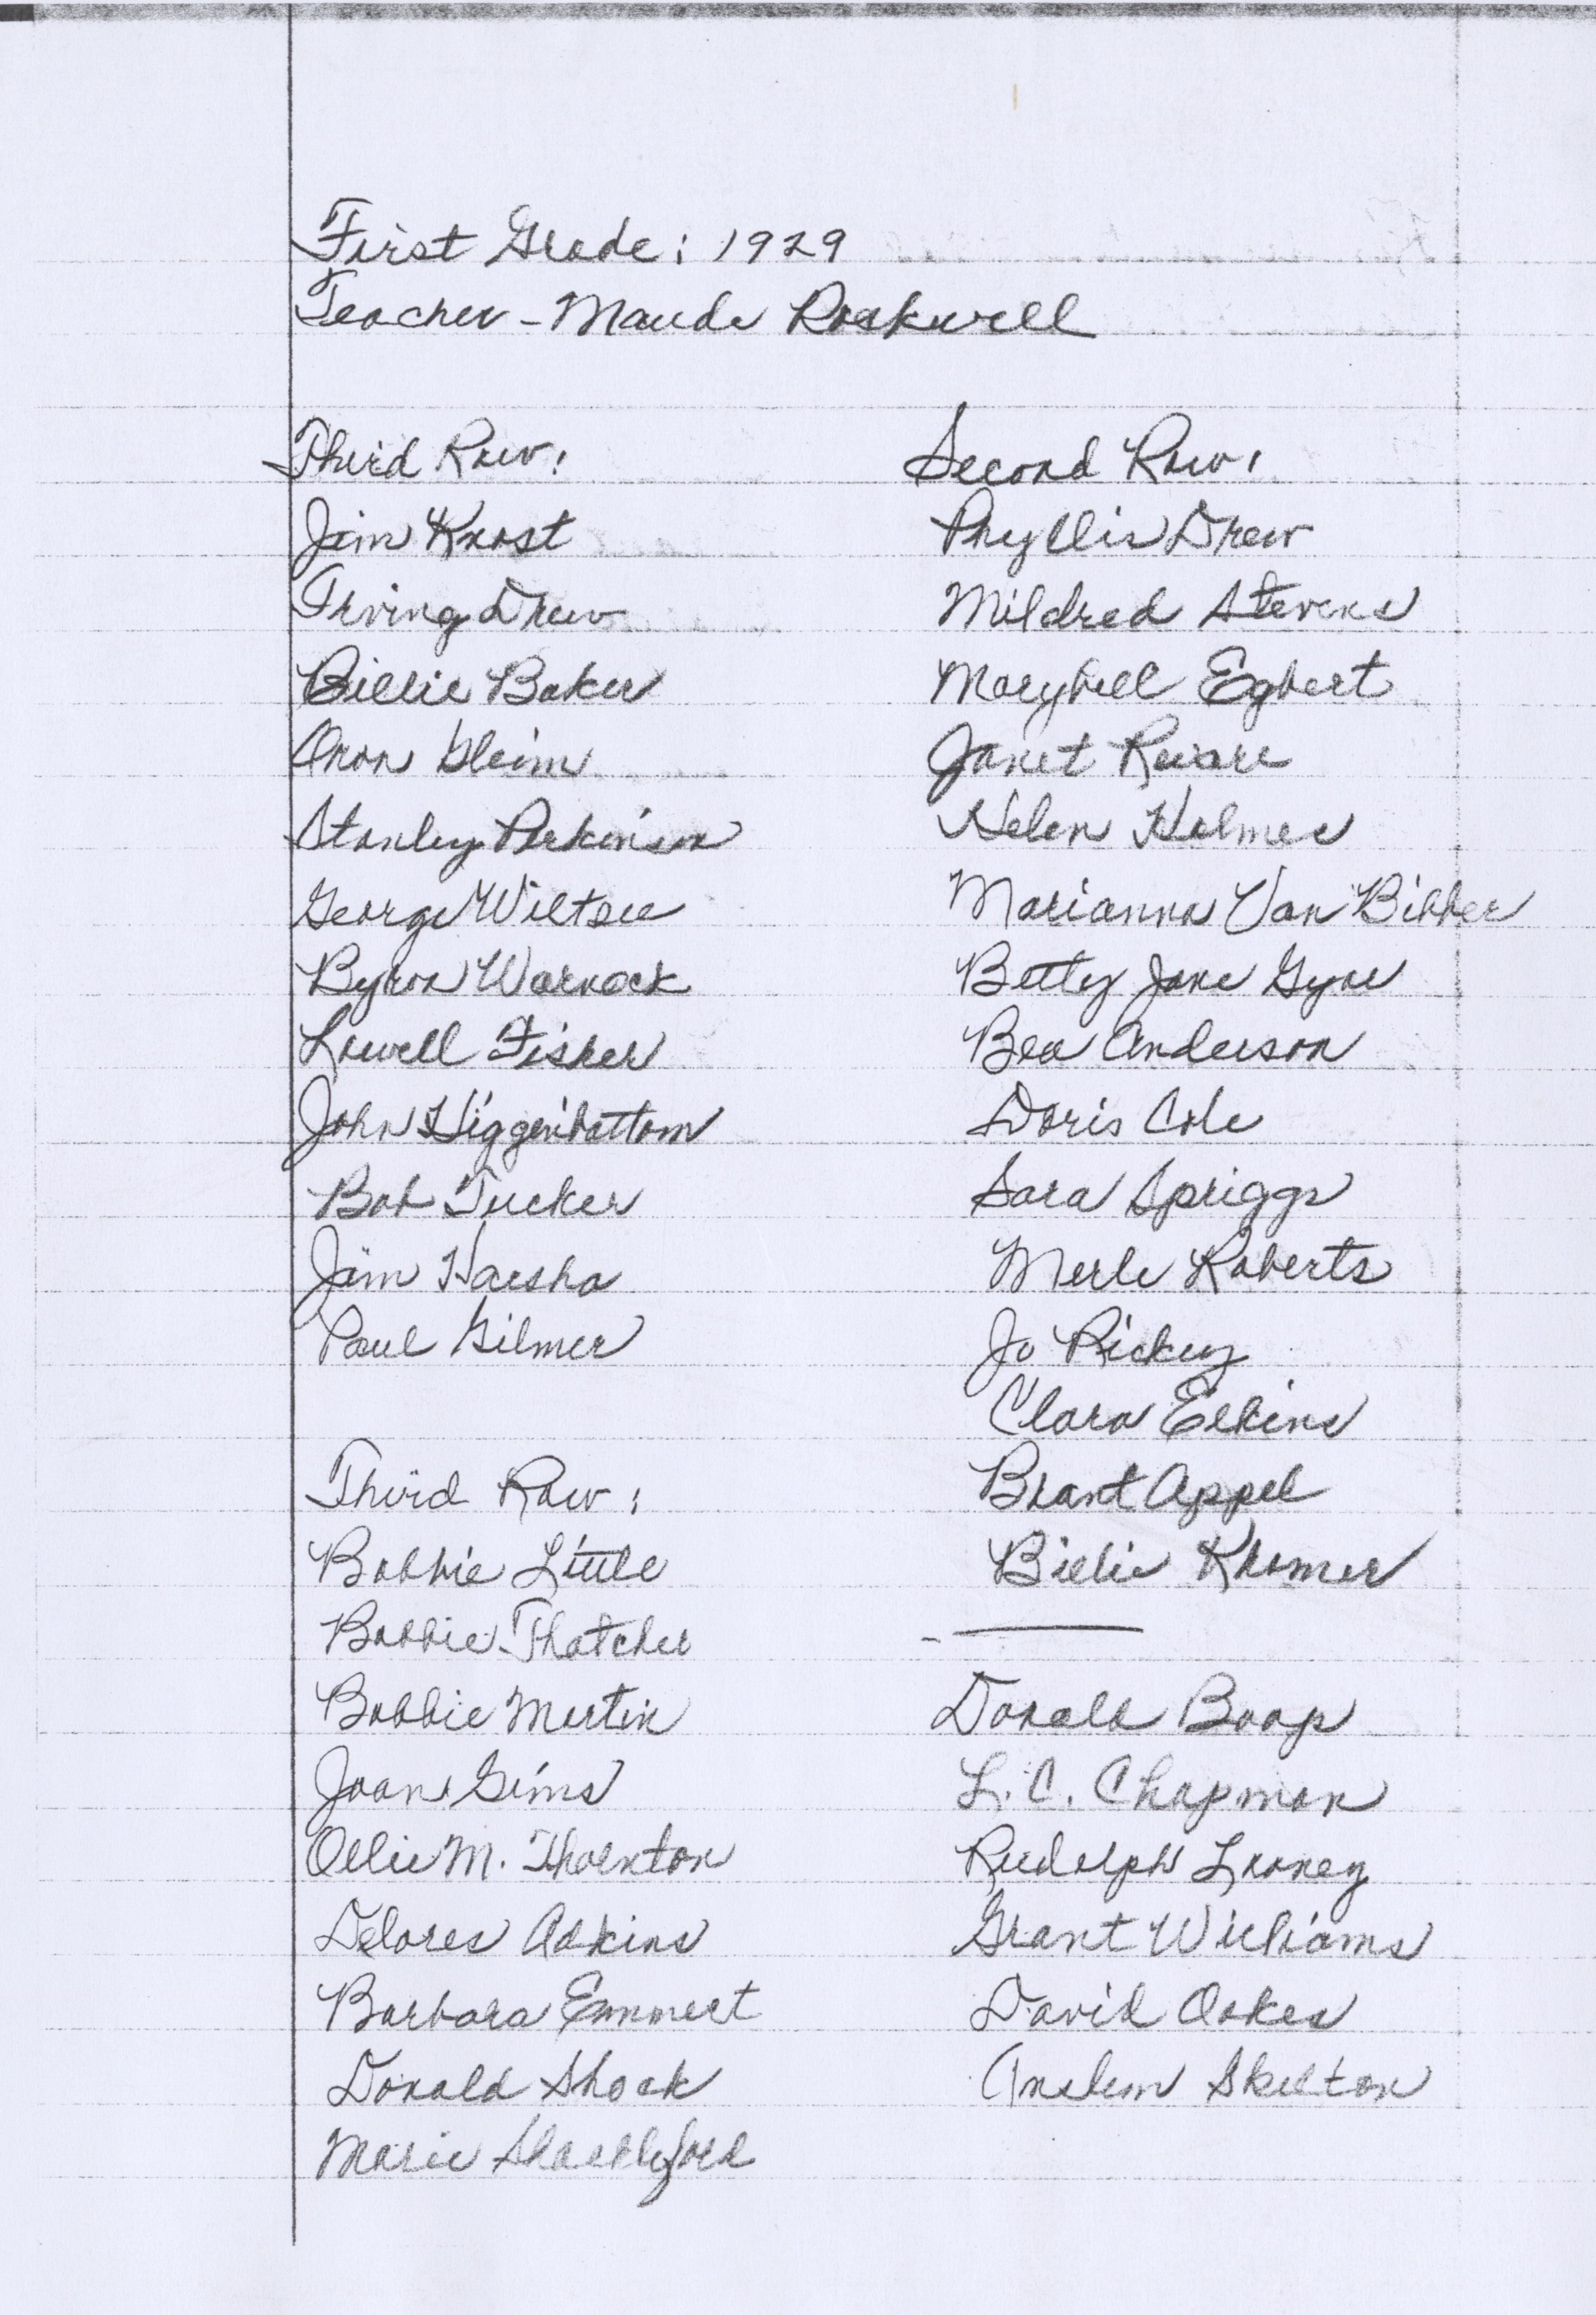 First Grade: 1929
Teacher - Maude Roskwell
Third Row:
Jim Knost
Irving Drew
Billie Baker
Oron Gleim
Stanley Perkinson
George Wiltsee
Byron Warnock
Lowell Fisher
John Higgenbottom
Bob Tucker
Jim Harsha
Paul Gilmer
Third Row:
Bobbie Little
Bobbie Thatcher
Bobbie Martin
Joan Sims
Ollie M. Thornton
Delores Adkins
Barbara Emmert
Donald Shook
Marie Shackleford
Second Row:
Phyllis Drew
Mildred Stevens
Marybell Egbert
Janet
Helen Holmes
Marianna Van Bibber
Betty Jane
Bea Anderson
Doris Cole
Sara Spriggs
Merle Roberts
Jo Rickey
Clara Elkins
Brant Appel
Billie Kromer
Donald Boop
L. C. Chapman
Rudolph Looney
Grant Williams
David Oakes
Anslem Skelton